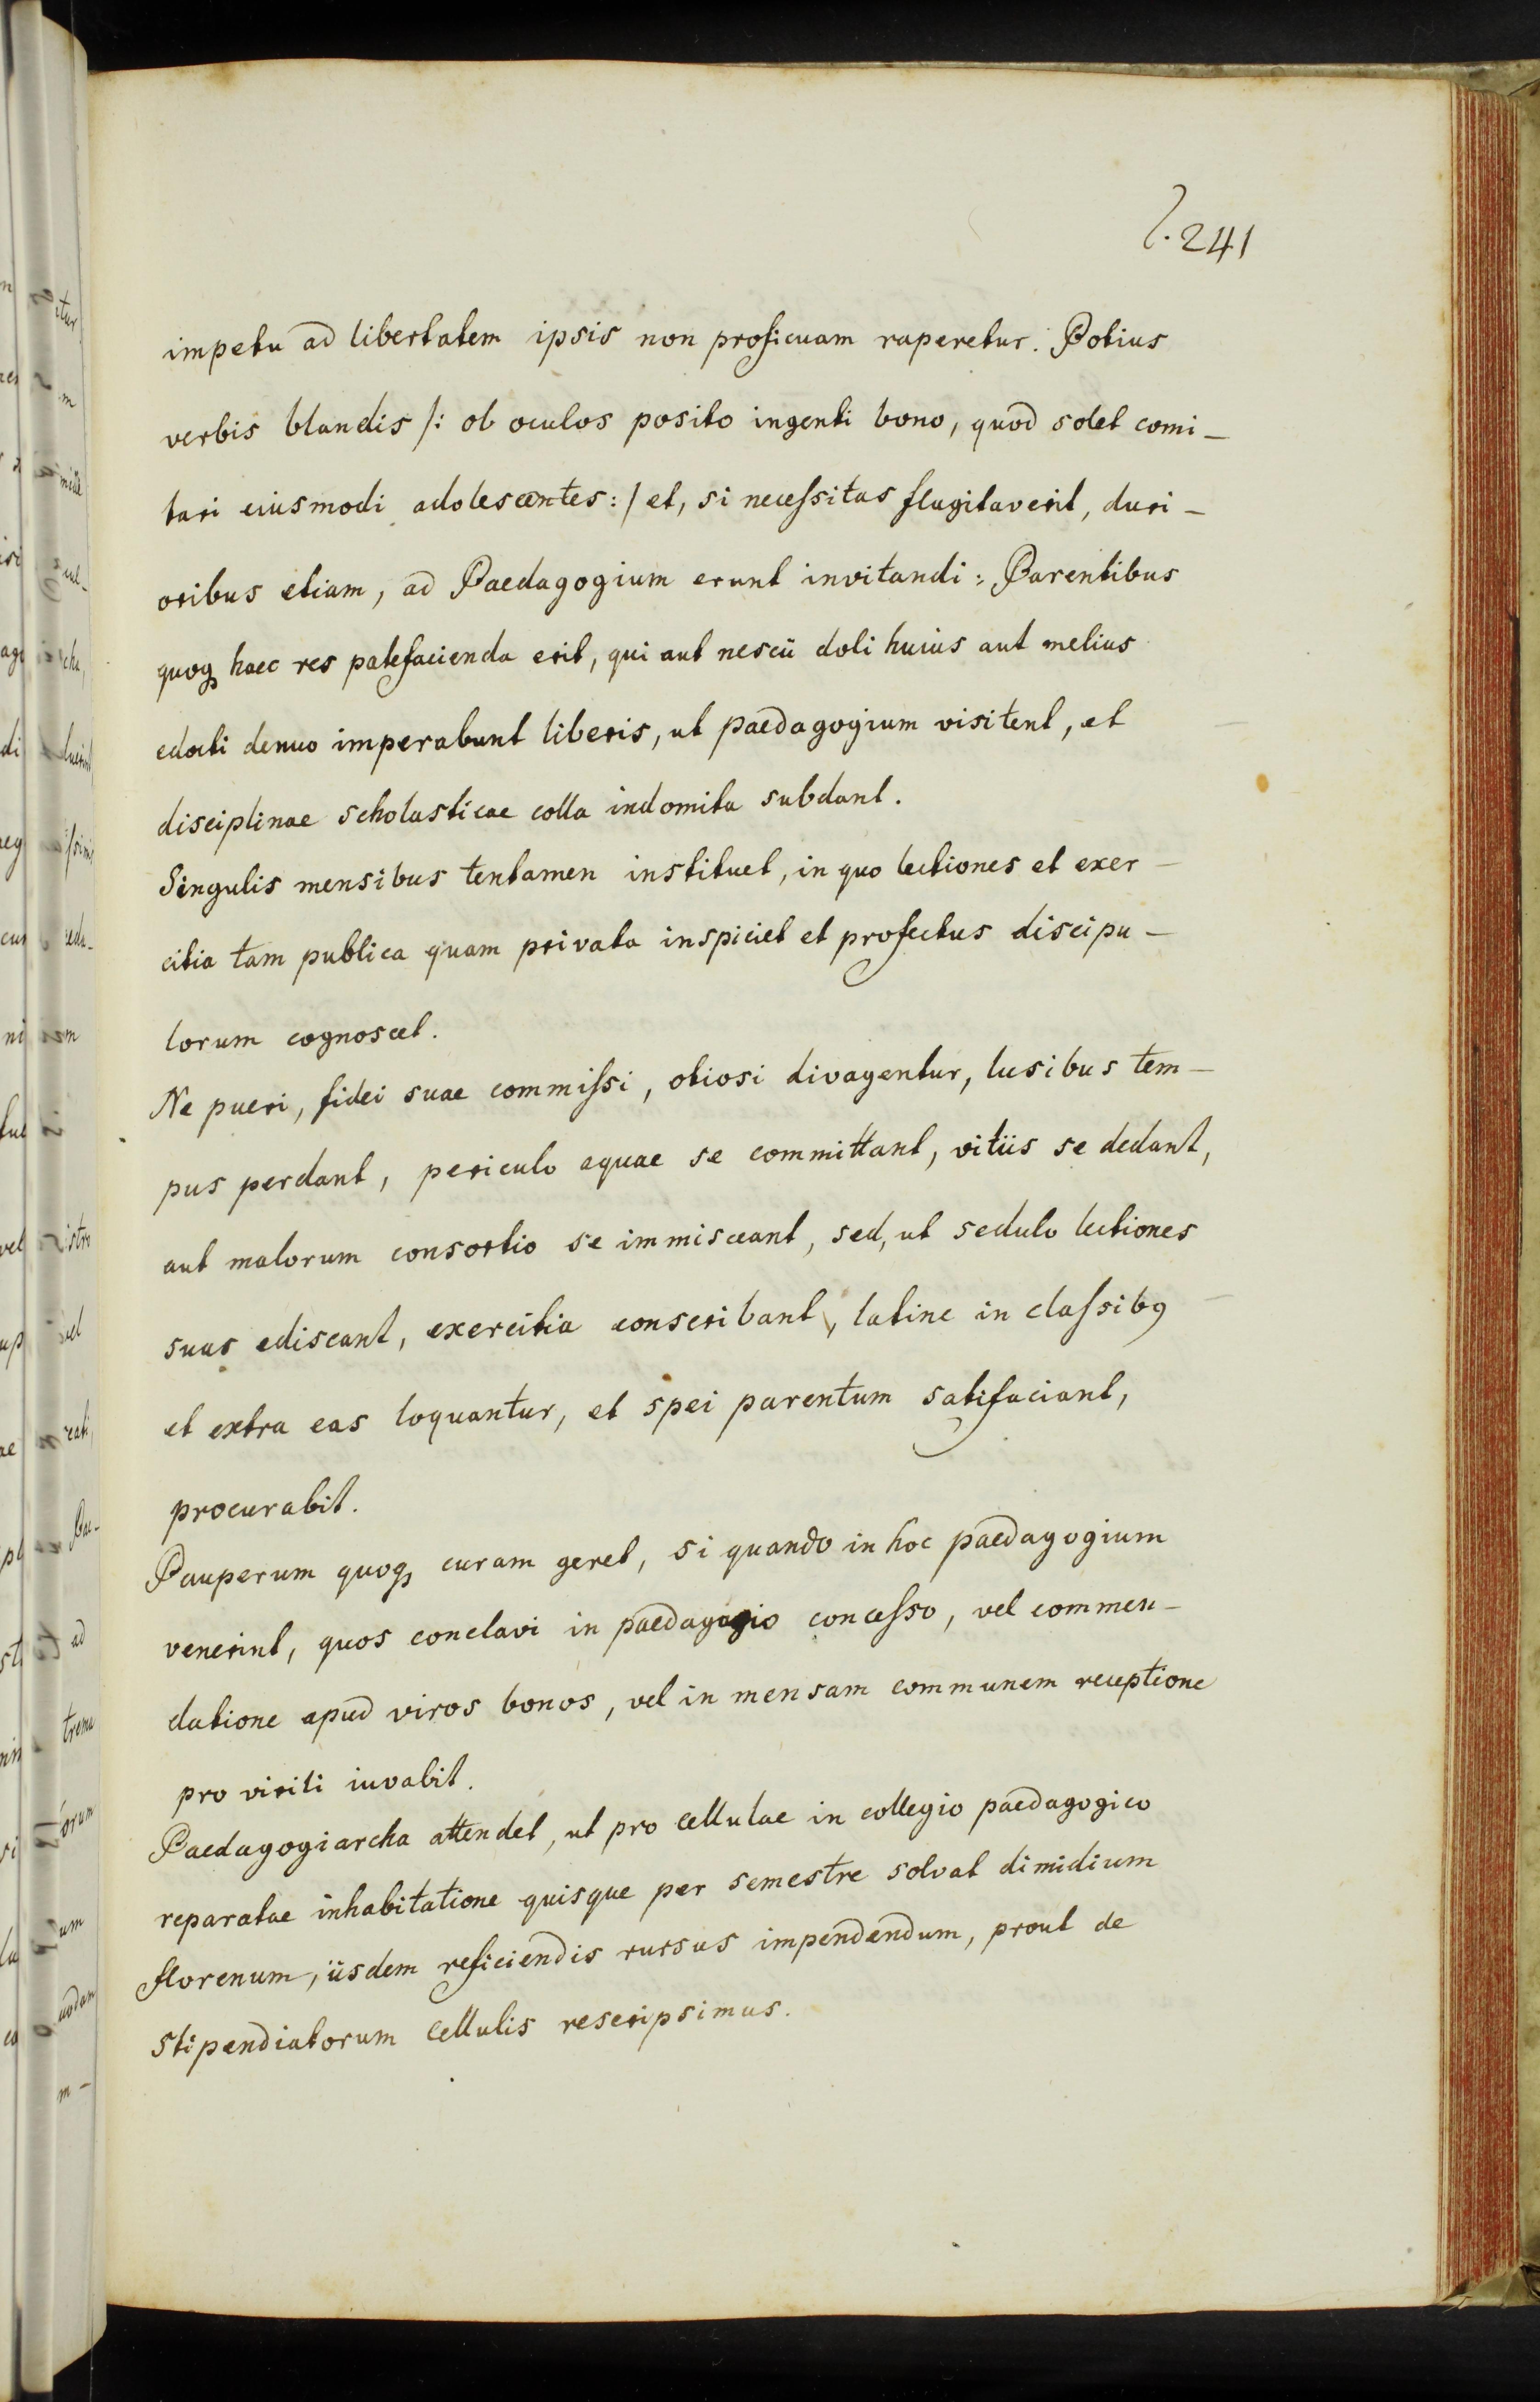 l. 241
impetu ad libertatem ipsis non proficuam raperetur. Potius
verbis blandis /: ob oculos posito ingenti bono, quod solet comi-
tari eiusmodi adolescentes: / et, si necessitas flagitaverit, duri-
oribus etiam, ad Paedagogium erunt invitandi: Parentibus
quoq haec res patefacienda erit, qui aut nescii doli huius aut melius
edocti denuo imperabunt liberis, ut paedagogium visitent, et
disciplinae scholasticae colla indomita subdant.
Singulis mensibus tentamen instituet, in quo lectiones et exer-
citia tam publica quam privata inspiciet et profectus discipu-
lorum cognoscet.
Ne pueri, fidei suae commissi, otiosi divagentur, lusibus tem-
pus perdant, periculo aquae se committant, vitiis se dedant,
aut malorum consortio se immisceant, sed, ut sedulo lectiones
suas ediscant, exercitia conscribant, latine in classibꝯ
et extra eas loquantur, et spei parentum satifaciant,
procurabit.
Pauperum quoq curam geret, si quando in hoc paedagogium
venerint, quos conclavi in paedagogio concesso, vel commen-
datione apud viros bonos, vel in mensam communem receptione
pro virili iuvabit.
Paedagogiarcha attendet, ut pro cellulae in collegio paedagogico
reparatae inhabitatione quisque per semestre solvat dimidium
florenum, iisdem reficiendis rursus impendendum, prout de
stipendiatorum cellulis rescripsimus.